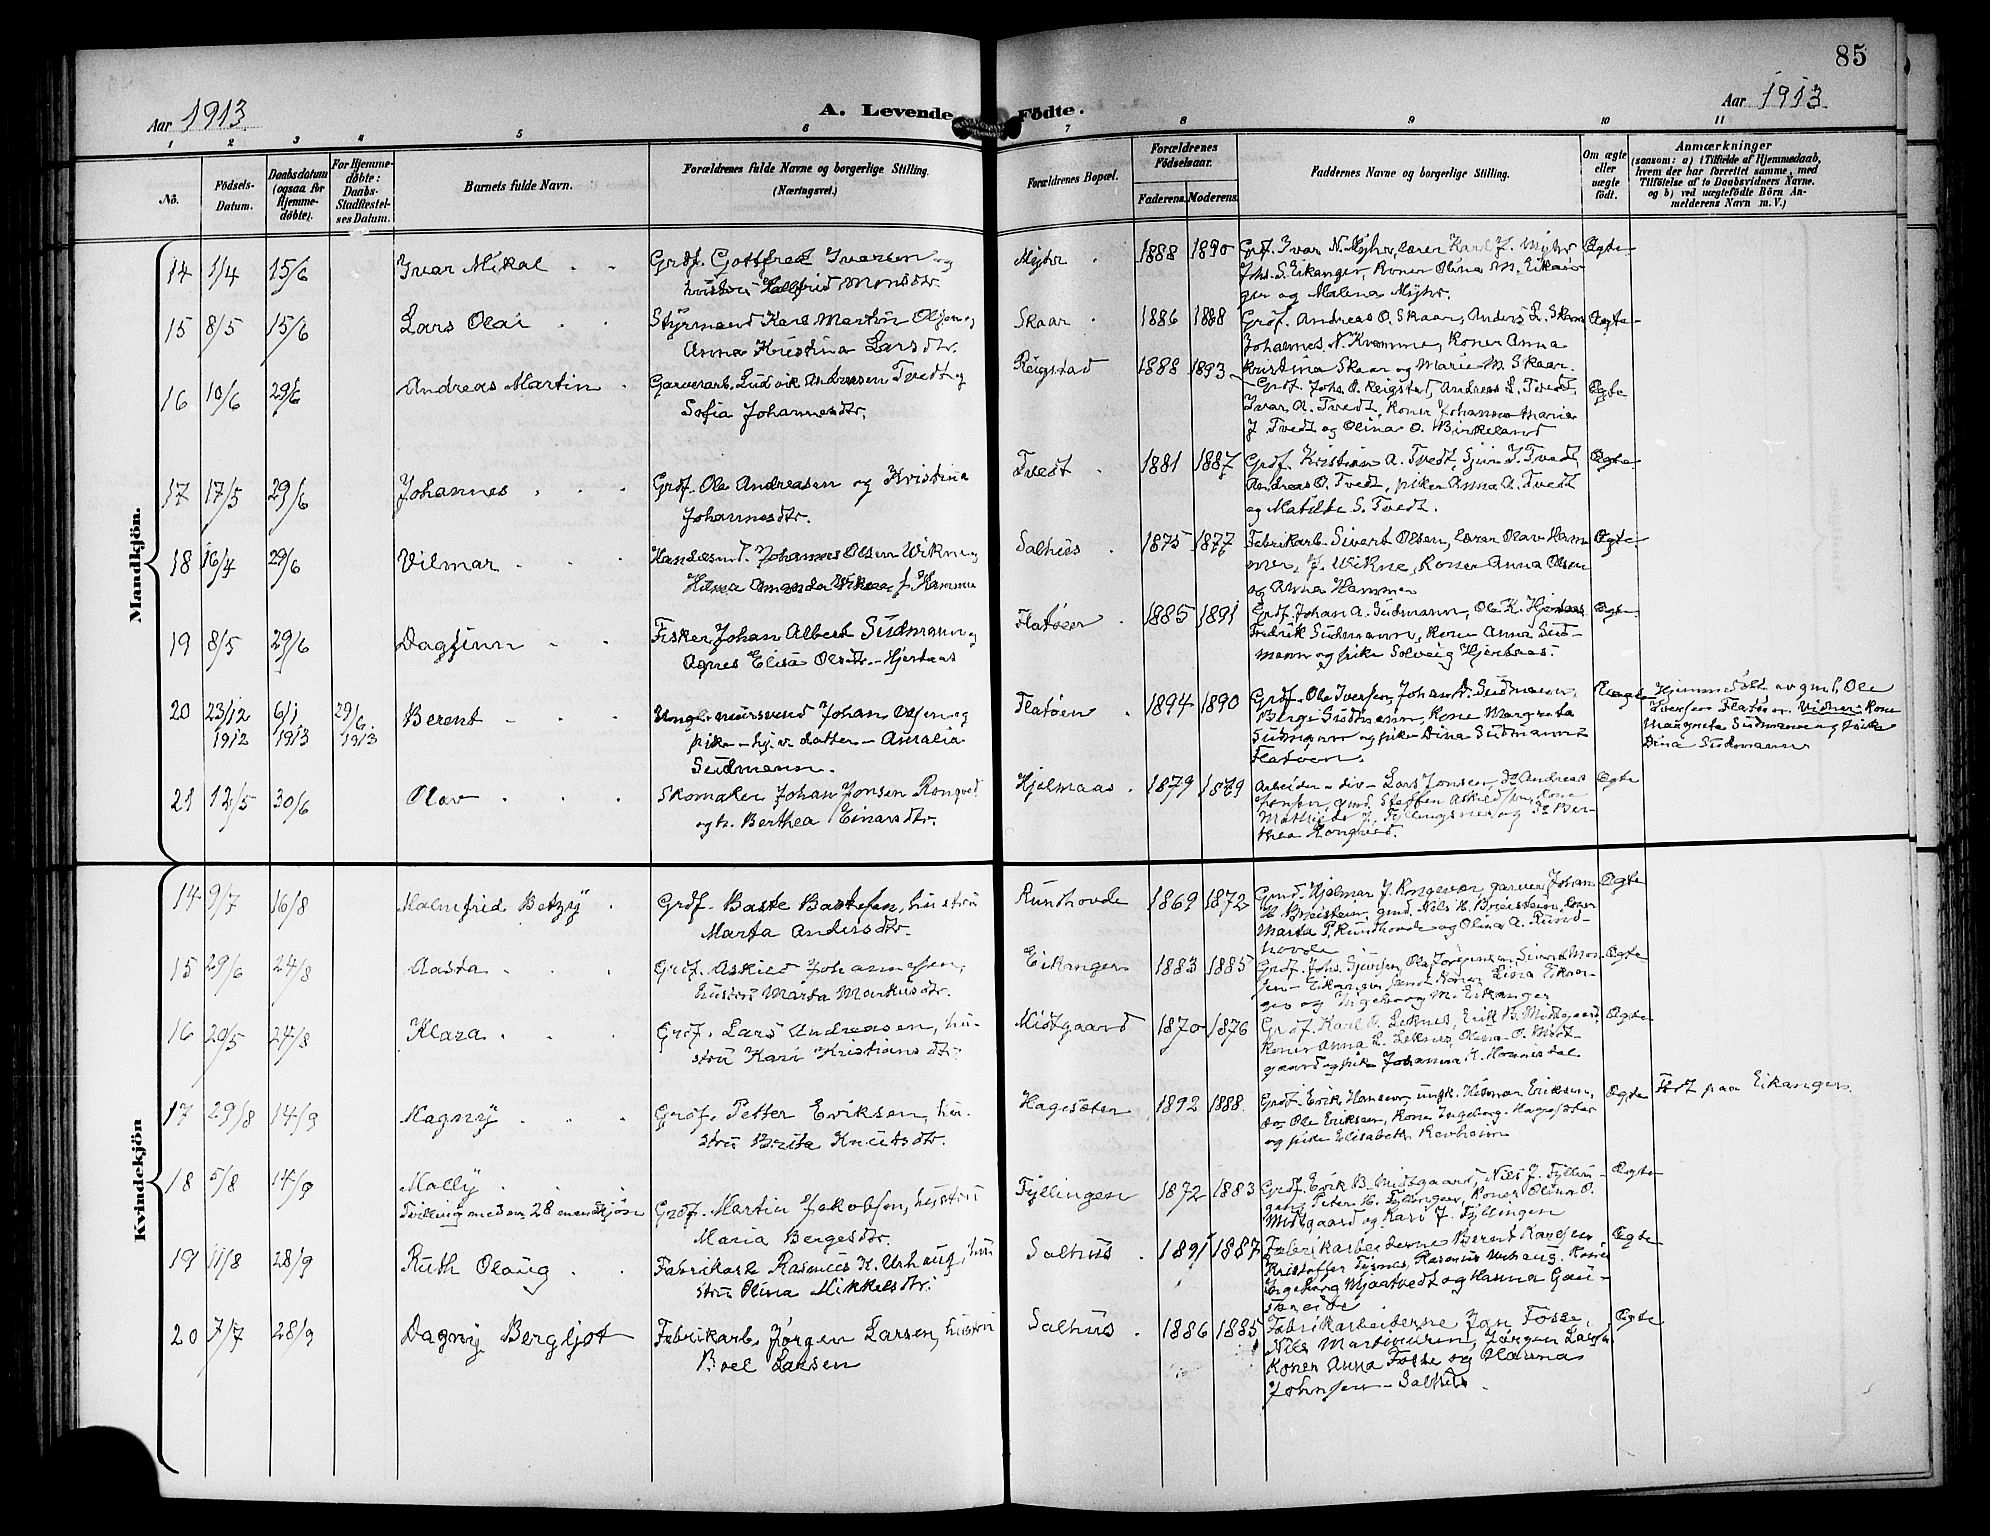 85
Aar 1913
A. Levende Födte.
Aar 1913
1 2 3 4 5 6 7 8 9 10 11
No.
Födsels-
Datum.
Daabsdatum
(ogsaa for
Hjemme-
döbte).
For Hjemme-
döbte:
Daabs-
Stadfæstel-
ses Datum.
Barnets fulde Navn.
Forældrenes fulde Navne og borgerlige Stilling.
(Næringsvei.)
Forældrenes Bopæl.
Forældrenes
Födselsaar.
Faderens. Moderens.
Faddernes Navne og borgerlige Stilling.
Om ægte
eller
uægte
födt.
Anmærkninger
(saasom: a) i Tilfælde af Hjemmedaab,
hvem der har forrettet samme, med
Tilföielse af to Daabsvidners Navne.
og b) ved uægtefödte Börn An-
melderens Navn m. V.)
Mandkjön.
14 1/4 15/6 Ivar Mikal
Grdf. Gottfred Ivarsen og
hustru Hallfrid Monsdtr.
Myhr 1888 1890
Grdf. Ivar N. Myhr, lærer Karl J. Myhr
Johs. S. Eikanger, Koner Olina M. Eikan-
ger og Malena Myhr.
Ægte
15 8/5 15/6 Lars Olai
Styrmand Karl Martin Olsen og
Anna Kristina Larsdtr.
Skaar 1886 1888
Grdf. Andreas O. Skaar, Anders L. Skaar
Johannes N. Kvamme, Koner Anna
Kristina Skaar og Marie M. Skaar.
Ægte
16 10/6 29/6 Andreas Martin
Garverarb. Ludvik Andersen Tvedt og
Sofia Johannesdtr.
Reigstad 1888 1893
Grdf. Johs. O. Reigstad, Andreas L. Tvedt,
Ivar A. Tvedt, Koner Johanna Maria
J. Tvedt og Olina O. Birkeland
Ægte
17 17/5 29/6 Johannes
Grdf. Ole Andreasen og Kristina
Johannesdtr.
Tvedt 1881 1887
Grdf. Kristian A. Tvedt, Sjur J. Tvedt,
Andreas O. Tvedt, piker Anna A. Tvedt
og Matilde S. Tvedt.
Ægte
18 16/4 29/6 Vilmar
Handelsmd. Johannes Olsen Wikne og
Hilma Amanda Wikne f. Hammer
Salhus 1875 1877
Fabrikarb. Sivert Olsen, lærer Olav Ham-
mer, J. Wikne, Koner Anna Olsen
og Anna Hammer
Ægte
19 8/5 29/6 Dagfinn
Fisker Johan Albert Sudmann og
Agnes Elisa Olsdtr. - Hjertaas
Flatöen 1885 1891
Grdf. Johan A. Sudmann, Ole K. Hjertaas
Fredrik Sudmann, Kone Anna Sud-
mann og pike Solveig Hjertaas.
Ægte
20 23/12 1912 6/1 1913 29/6 1913 Berent
Ungk. murersvend Johan Olsen og
pike - hj. v. datter - Amalia
Sudmann.
Flatöen 1894 1890
Grdf. Ole Iversen, Johan A. Sudmann,
Berge Sudmann, Kone Margreta
Sudmann og pike Dina Sudmann -
Flatöen.
Uægte
Hjemmedöbt av gml. Ole
Iversen Flatöen. Vidner - Kone
Margreta Sudmann og pike
Dina Sudmann
21 12/5 30/6 Olav
Skomaker Johan Jonsen Rongved
og h. Berthea Einarsdtr.
Hjelmaas 1879 1879
Arbeider - div - Lars Jonsen, do Andreas
Jonsen, gmd. Steffen Askildsen, Kone
Mathilde J. Fyllingsnes og do Ber-
thea Rongved.
Ægte
Kvindekjön
14 9/7 16/8 Malmfrid Betzy
Grdf. Baste Bastesen, hustru
Marta Andersdtr.
Rundhovde 1869 1872
Gmd. Hjalmar J. Rongevær, garver Johan
H. Breistein, gmd. Nils H. Breistein, koner
Marta P. Rundhovde og Olina A. Rund-
hovde
Ægte
15 29/6 24/8 Aasta
Grdf. Askild Johannesen,
hustru Marta Markusdtr.
Eikanger 1883 1885
Grdf. Johs. Sjursen, Ola Jörgensen, Sivert Mon-
sen - Eikanger samt Koner Lina Eikan-
ger og Ingeborg M. Eikanger
Ægte
16 29/5 24/8 Klara
Grdf. Lars Andreasen, hu-
stru Kari Kristiansdtr.
Midtgaard 1870 1876
Grdf. Karl O. Leknes, Erik B. Midtgaard,
Koner Anna L. Leknes, Olina O. Midt-
gaard og pike Johanna K. Honnisdal
Ægte
17 29/8 14/9 Magny
Grdf. Petter Eriksen, hu-
stru Brita Knutsdtr.
Hagesæter 1892 1888.
Grdf. Erik Hansen, ungk. Hilmar Eriksen,
do Ole Eriksen, Kone Ingeborg Hagesæter
og pike Elisabeth Revheim
Ægte
Födt paa Eikanger
18 5/8 14/9 Mally
Tvilling med nr. 28 mandkjön
Grdf. Martin Jakobsen, hustru
Maria Bergesdtr.
Fyllingen 1872 1883
Grdf. Erik B. Midtgaard, Nils J. Fyllin-
gen, Peter H. Fyllingen, Koner Olina O.
Midtgaard og Kari J. Fyllingen
Ægte
19 11/8 28/9 Ruth Olaug
Fabrikarb. Rasmus K. Urhaug, hu-
stru Olina Mikkelsdtr.
Salhus 1891 1887
Fabrikarbeiderne Bernt Knudsen
Kristoffer Tysnes, Rasmus Urhaug, Koner
Ingeborg Mjaatvedt og Hanna Gau-
stareide
Ægte
20 7/7 28/9 Dagny Bergljot
Fabrikarb. Jörgen Larsen, hustru
Boel Larsen
Salhus 1886 1885
Fabrikarbeiderne Jan Fosse,
Nils Martinusen, Jörgen Larsen,
Koner Anna Fosse og Hanna
Johnsen - Salhus.
Ægte